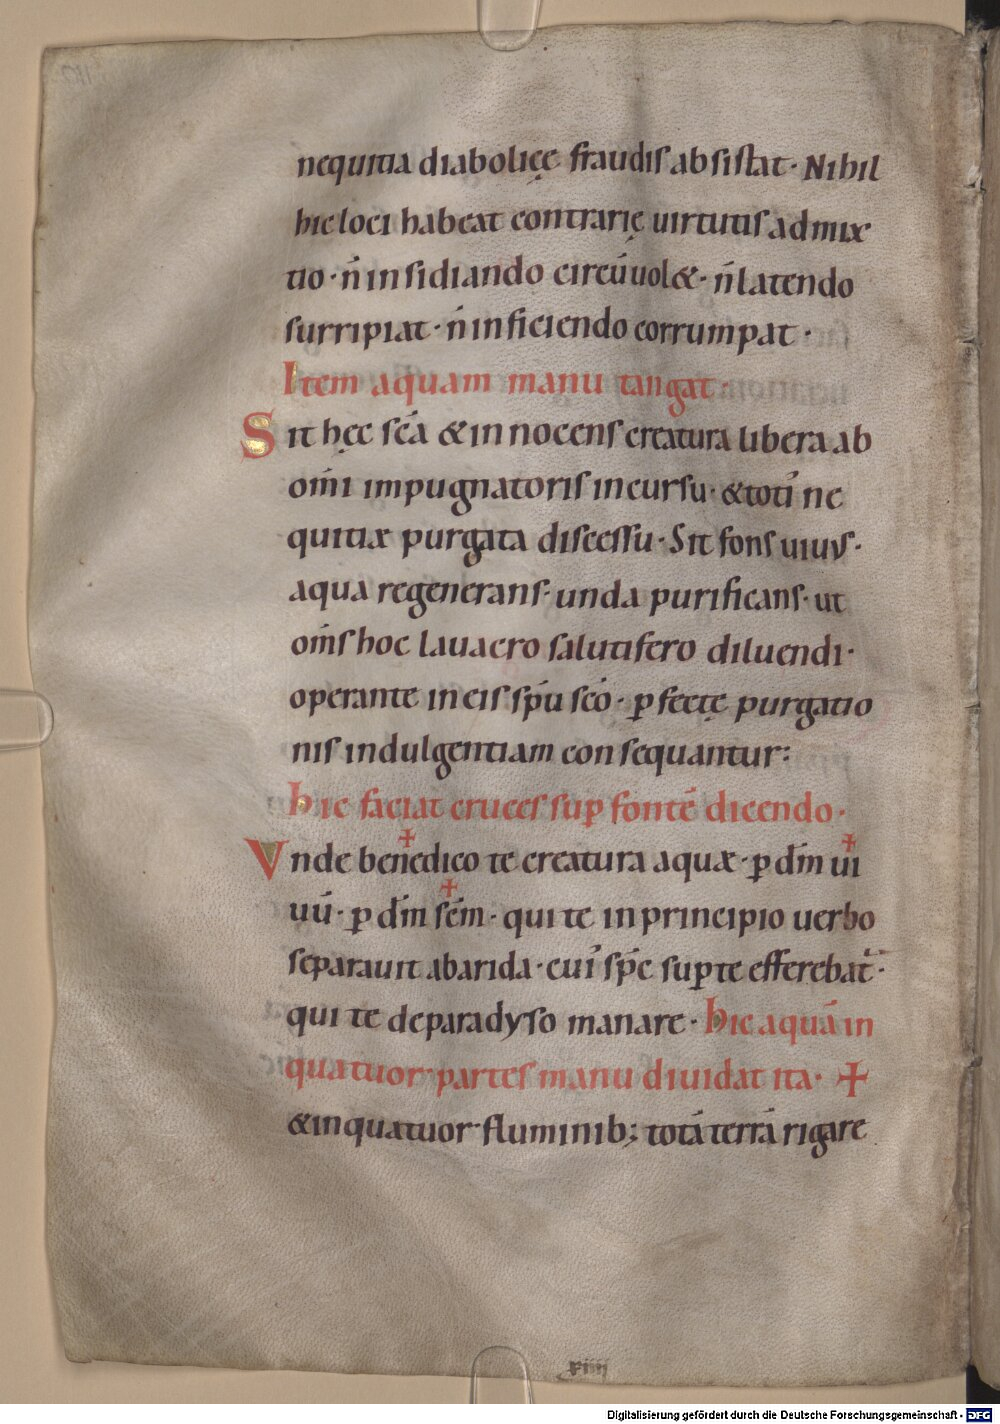 nequitia diabolicę fraudis absistat · Nihil
hic loci habeat contrarię uirtutis admix
tio · n̄ insidiando circūuolet · n̄ latendo
surripiat · n̄ inficiendo corrumpat ·
Item aquam manu tangat ·
Sit hęc sc̄a & innocens creatura libera ab
om̄i impugnatoris incursu · & toti' ne
quitiæ purgata discessu · Sit fons uiuus ·
aqua regenerans · unda purificans · ut
om̄s hoc lauacro salutifero diluendi ·
operante in eis sp̄u sc̄o · ꝑfectę purgatio
nis indulgentiam consequantur :
hic faciat cruces suꝑ fontē dicendo ·
Vnde bene✝dico te creatura aquæ · ꝑ dm̄ ✝ui
uū · ꝑ dm̄ ✝sc̄m · qui te in principio uerbo
separauit ab arida · cui' sp̄c suꝑ te efferebat᷑ ·
qui te de paradyso manare · hic aquā in
quatuor partes manu diuidat ita · ✝
& in quatuor fluminib; totā terrā rigare
xiiii
Digitalisierung gefördert durch die Deutsche Forschungsgemeinschaft - DFG